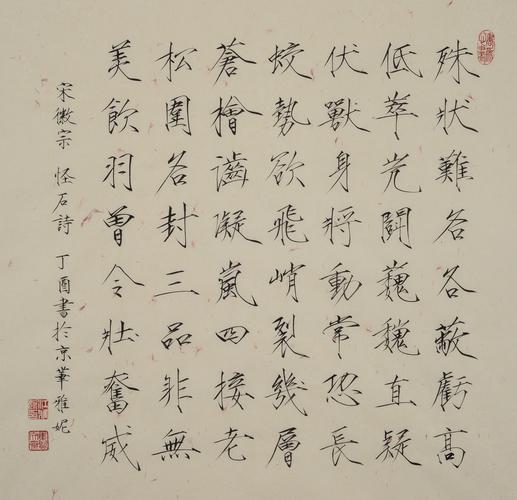 殊狀難名各蔽虧高
低萃岏鬪巍巍直疑
伏獸身將動常恐長
蛟勢欲飛峭裂幾層
蒼檜齒凝嵐四接老
松圍各封三品非無
美飲羽曾令壯奮威
宋徽宗 怪石詩 丁酉書於京華雅妮